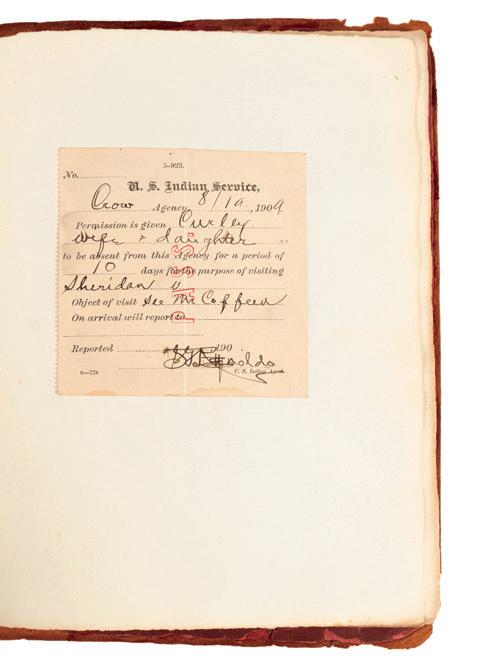 5-923.
No.
U. S. Indian Service,
Crow Agency, 8/19, 1909.
Permission is given Curley
wife & daughter
to be absent from this Agency for a period of
10 days for the purpose of visiting
Sheridan
Object of visit see Mr Coffeen
On arrival will report to
Reported 190
Reynolds
6—778 U. S. Indian Agent.
PASS